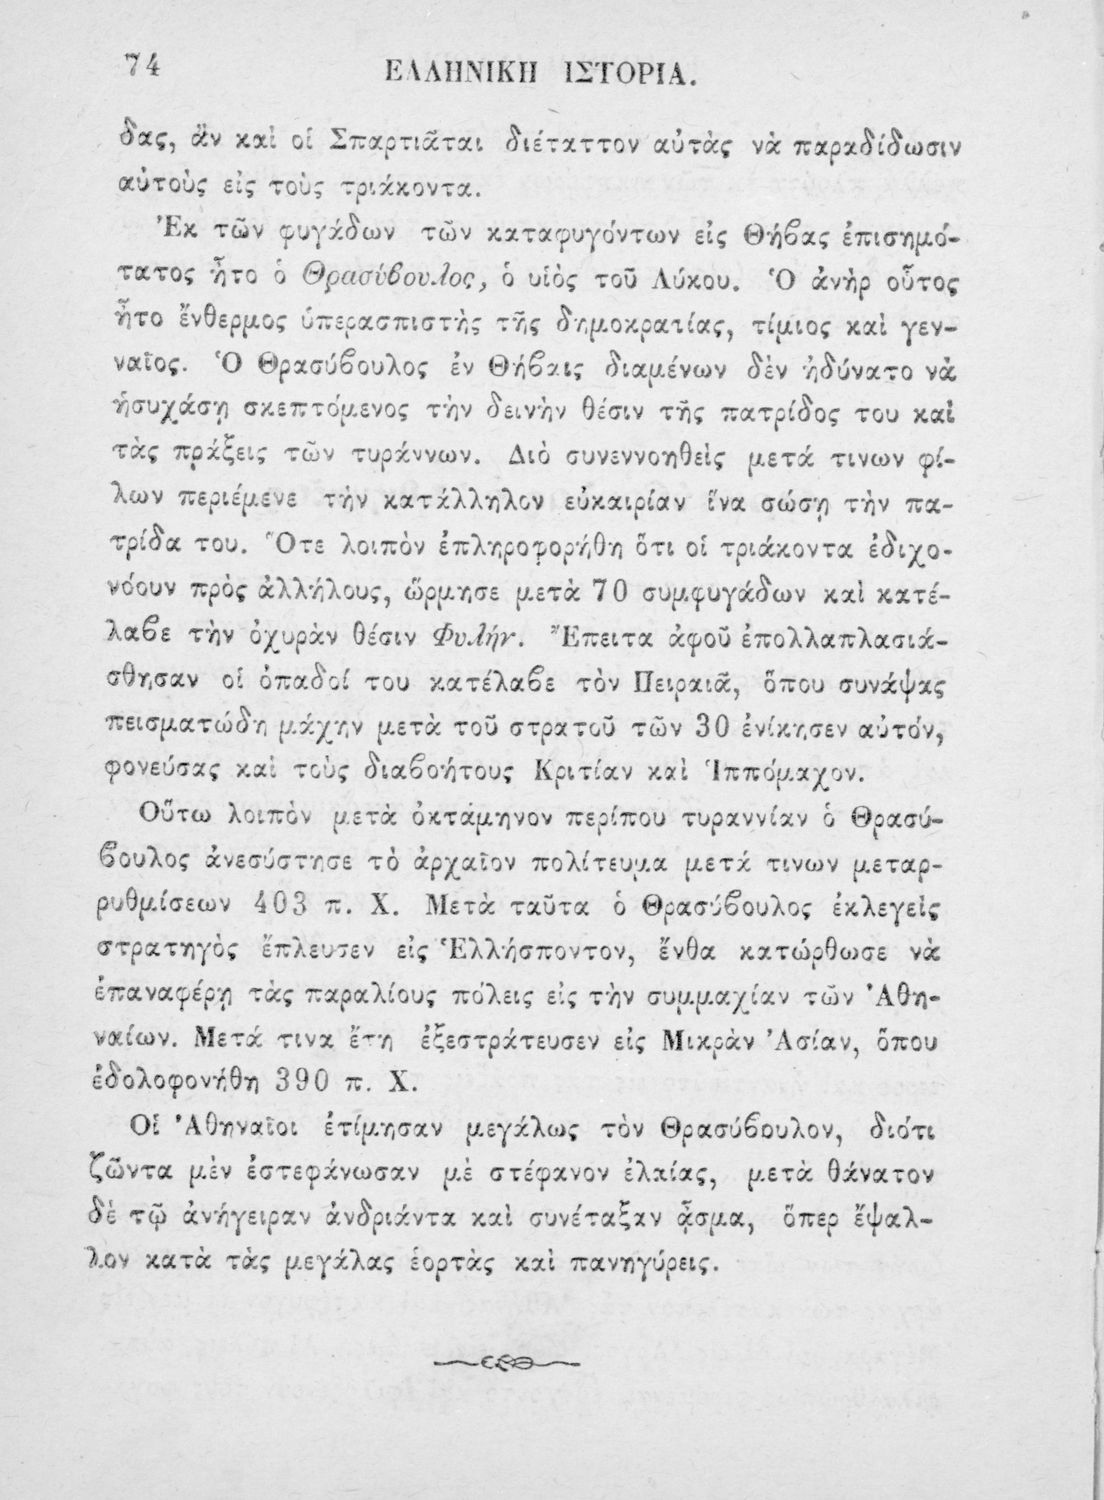 74 ΕΛΛΗΝΙΚΗ ΙΣΤΟΡΙΑ.
δας, ἂν καὶ οἱ Σπαρτιᾶται διέταττον αὐτὰς νὰ παραδίδωσιν
αὐτοὺς εἰς τοὺς τριάκοντα.
Ἐκ τῶν φυγάδων τῶν καταφυγόντων εἰς Θήβας ἐπισημό-
τατος ἦτο ὁ Θρασύβουλος, ὁ υἱὸς τοῦ Λύκου. Ὁ ἀνὴρ οὗτος
ἦτο ἔνθερμος ὑπερασπιστὴς τῆς δημοκρατίας, τίμιος καὶ γεν-
ναῖος. Ὁ Θρασύβουλος ἐν Θήβαις διαμένων δὲν ἠδύνατο νὰ
ἡσυχάσῃ σκεπτόμενος τὴν δεινὴν θέσιν τῆς πατρίδος του καὶ
τὰς πράξεις τῶν τυράννων. Διὸ συνεννοηθεὶς μετά τινων φί-
λων περιέμενε τὴν κατάλληλον εὐκαιρίαν ἵνα σώσῃ τὴν πα-
τρίδα του. Ὅτε λοιπὸν ἐπληροφορήθη ὅτι οἱ τριάκοντα ἐδιχο-
νόουν πρὸς ἀλλήλους, ὥρμησε μετὰ 70 συμφυγάδων καὶ κατέ-
λαβε τὴν ὀχυρὰν θέσιν Φυλήν. Ἔπειτα ἀφοῦ ἐπολλαπλασιά-
σθησαν οἱ ὀπαδοί του κατέλαβε τὸν Πειραιᾶ, ὅπου συνάψας
πεισματώδη μάχην μετὰ τοῦ στρατοῦ τῶν 30 ἐνίκησεν αὐτόν,
φονεύσας καὶ τοὺς διαβοήτους Κριτίαν καὶ Ἱππόμαχον.
Οὕτω λοιπὸν μετὰ ὀκτάμηνον περίπου τυραννίαν ὁ Θρασύ-
βουλος ἀνεσύστησε τὸ ἀρχαῖον πολίτευμα μετά τινων μεταρ-
ρυθμίσεων 403 π. Χ. Μετὰ ταῦτα ὁ Θρασύβουλος ἐκλεγεὶς
στρατηγὸς ἔπλευσεν εἰς Ἑλλήσποντον, ἔνθα κατώρθωσε νὰ
ἐπαναφέρῃ τὰς παραλίους πόλεις εἰς τὴν συμμαχίαν τῶν Ἀθη-
ναίων. Μετά τινα ἔτη ἐξεστράτευσεν εἰς Μικρὰν Ἀσίαν, ὅπου
ἐδολοφονήθη 390 π. Χ.
Οἱ Ἀθηναῖοι ἐτίμησαν μεγάλως τὸν Θρασύβουλον, διότι
ζῶντα μὲν ἐστεφάνωσαν μὲ στέφανον ἐλαίας, μετὰ θάνατον
δὲ τῷ ἀνήγειραν ἀνδριάντα καὶ συνέταξαν ᾆσμα, ὅπερ ἔψαλ-
λον κατὰ τὰς μεγάλας ἑορτὰς καὶ πανηγύρεις.